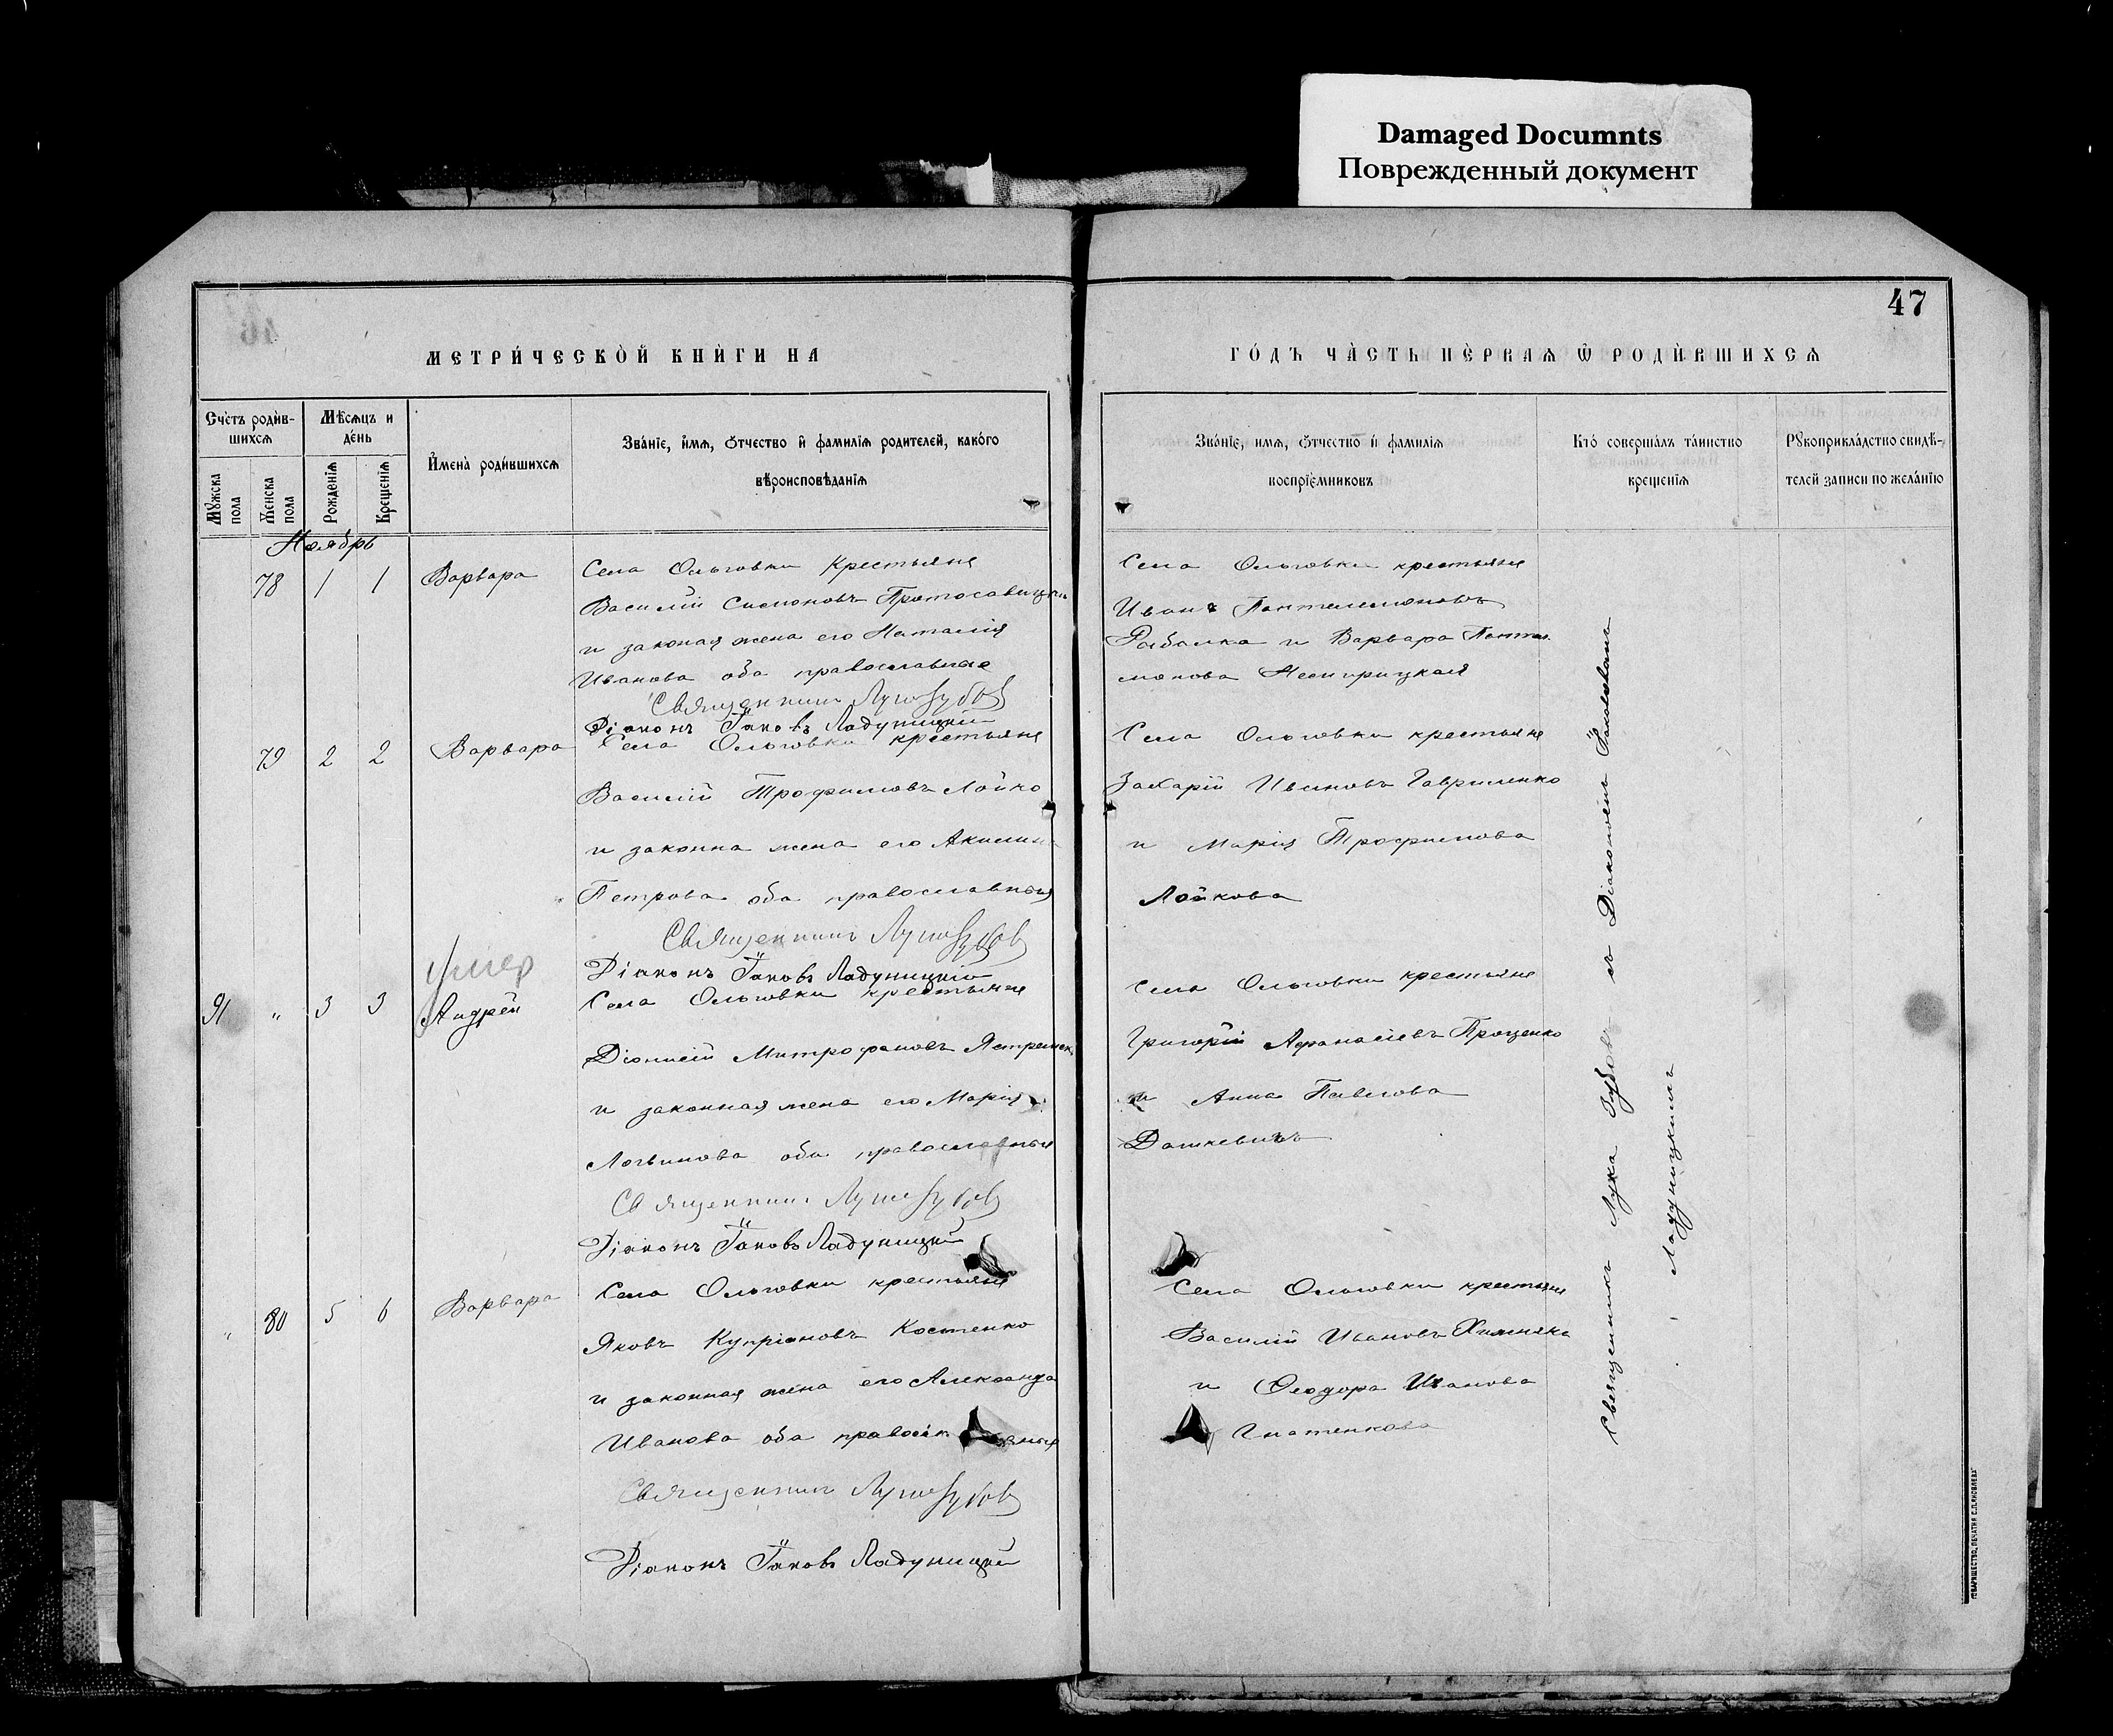 Damaged Documnts
Поврежденный документ
47
МЕТРИ́ЧЕСКОЙ КНИ́ГИ НА
ГО́ДЪ ЧА́СТЬ ПЕ́РВАѦ Ѡ҆ РОДИ́ВШИХСѦ
Сче́тъ роди́в-
шихсѧ
Мѣ́сѧцъ и
де́нь
Мꙋжска пола
Женска пола
Рожденїѧ
Крещенїѧ
И҆мена̀ роди́вшихсѧ
Зва́нїе, и҆́мѧ, ѻ҆́тчество и҆ фамилїѧ родителей, како́го
вѣроисповѣ́данїѧ
Зва́нїе, имѧ, ѻ҆́тчество и҆ фамилїѧ
воспрїе́мниковъ
Кто́ соверша́лъ та́инство
креще́нїѧ
Рꙋкоприкла́дство свидѣ́-
телей записи по жела́нїю
Ноябрь
78 1 1 Варвара
Села Ольговки Крестьяне
Василій Симоновъ
и законая жена его Наталія
Иванова оба православные
Священникъ Лука Зубовъ
Діаконъ Іаковъ Ладуницкій
Села Ольговки крестьяне
Иванъ Пантелимоновъ
Рыбалка и Варвара Панте-
монова
79 2 2 Варвара
Села Ольговки крестьяне
Василій Трофимовъ Лойко
и законна жена его Акилина
Петрова оба православныя
Священникъ Лука Зубовъ
Діаконъ Іаковъ Ладуницкій
Села Ольговки крестьяне
Захарій Ивановъ Гавриленко
и Марія Трофимова
Лойкова
умер
91 " 3 3 Андрей
Села Ольговки крестьяне
Діонисій Митрофановъ
и законная жена его Марія
Логвинова оба православныя
Священникъ Лука Зубовъ
Діаконъ Іаковъ Ладуницкій
Села Ольговки крестьяне
Григорій Афанасіевъ Проценко
и Анна Павлова
Дашкевичъ
" 80 5 6 Варвара
Села Ольговки крестьяне
Яковъ Купріановъ Костенко
и законная жена его Александра
Иванова оба православныя
Священникъ Лука Зубовъ
Діаконъ Іаковъ Ладуницкій
Села Ольговки крестьяне
Василій Ивановъ
и Ѳеодора Иванова
Гнатенкова
Священникъ Лука Зубовъ съ Діакономъ Іаковомъ
Ладуницкимъ